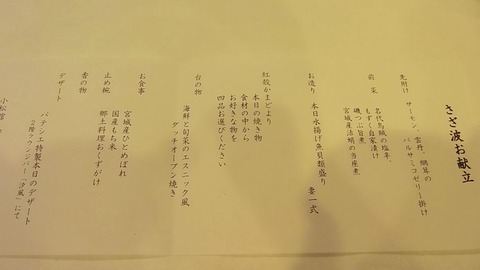 さざ波お献立
先附け サーモン、雲丹、胡瓜の
バルサミコゼリー掛け
前菜 名代烏賊の塩辛、
もずく自家漬け
磯つぶ旨煮
宮城産法蛸の当座煮
お造り 本日水揚げ魚貝類盛り 妻一式
紅殻かまどより
本日の焼き物
食材の中から
お好きな物を
四品お選びください
台の物
海鮮と旬菜のエスニック風
ダッチオーブン焼き
お食事 宮城産ひとめぼれ
国産もち米
止め椀 郷土料理おくずがけ
香の物
デザート
パテシエ特製本日のデザート
2階ラウンジバー「汐風」にて
小松舘